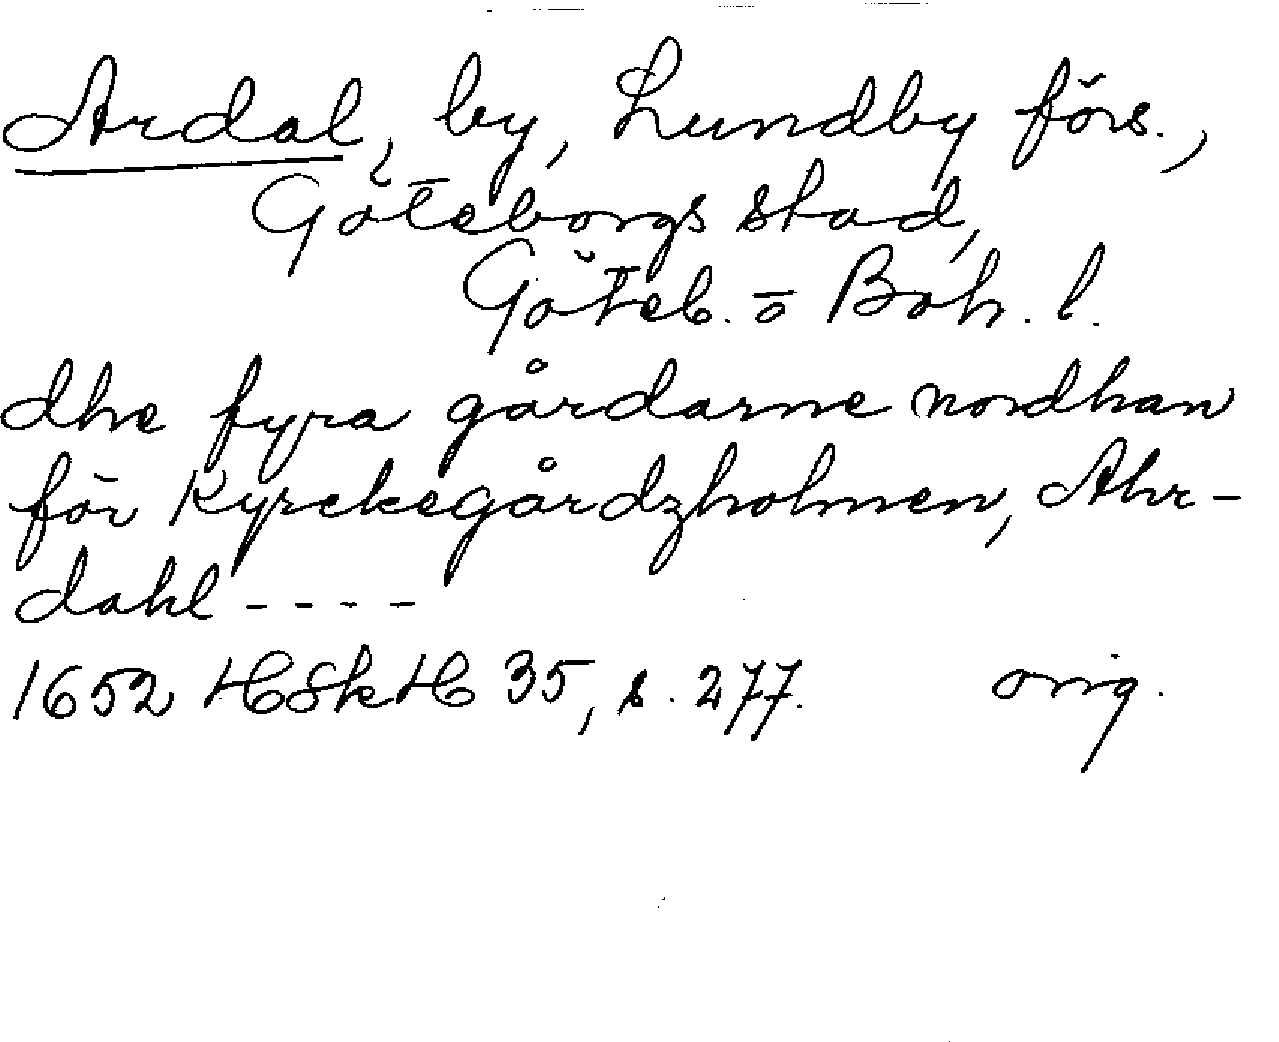 Ardal, by, Lundby förs.,
Göteborgs stad,
Göteb. o Boh. l.
dhe fyra gårdarne nordhan
för Kyrckegårdzholmen, Ahr-
dahl - - - -
1652 HSkH 35, s. 277. orig.